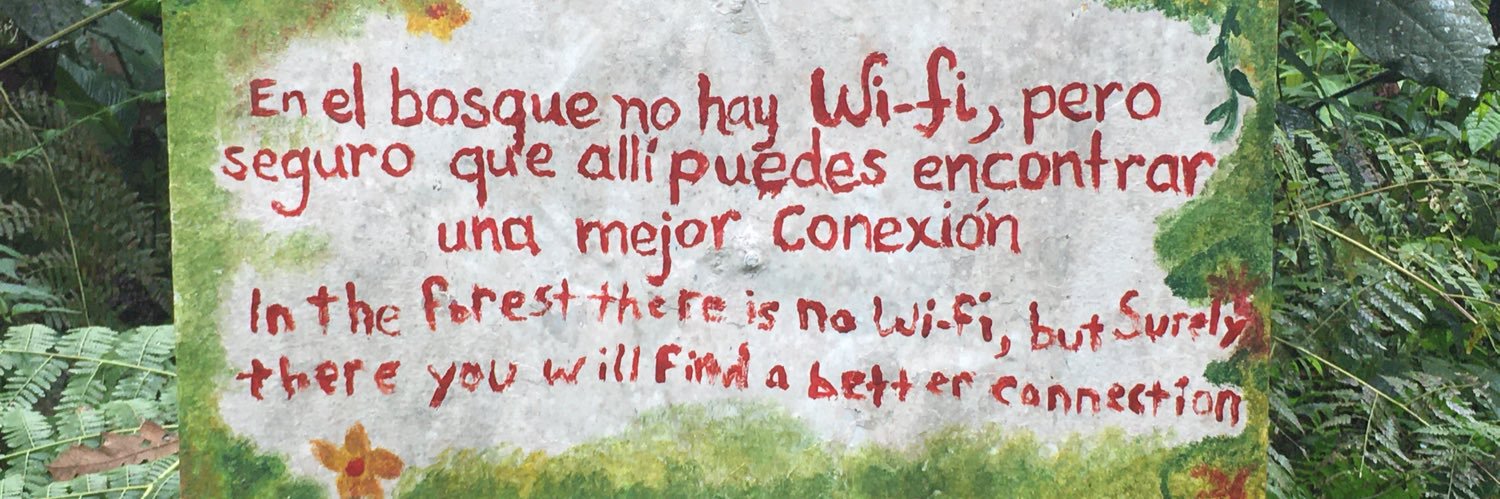 En el bosque no hay Wi-fi, pero
seguro que allí puedes encontrar
una mejor Conexión
In the forest there is no Wi-fi, but Surely
there you will find a better connection